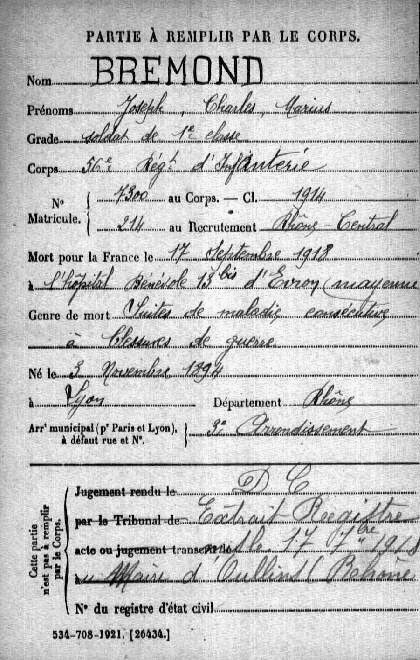 PARTIE À REMPLIR PAR LE CORPS.
Nom BREMOND
Prénoms Joseph, Charles, Marius
Grade soldat de 1e classe
Corps 56e Régt d'Infanterie
N° Matricule. { 7300 au Corps. — Cl. 1914
214 au Recrutement Rhône-Central
Mort pour la France le 17 Septembre 1918
à l'hôpital Bénévole 13 bis d'Evron (mayenne
Genre de mort Suites de maladie consécutive
à blessures de guerre
Né le 3 Novembre 1894
à Lyon Département Rhône
Arrt municipal (pr Paris et Lyon), à défaut rue et N°. } 3e Arrondissement
Cette partie n'est pas à remplir par le Corps.
Jugement rendu le D C
par le Tribunal de Extrait Registre
acte ou jugement transcrit le 17 7bre 1918
Maire d'Oullins (Rhône
N° du registre d'état civil
534-708-1921. [26434.]